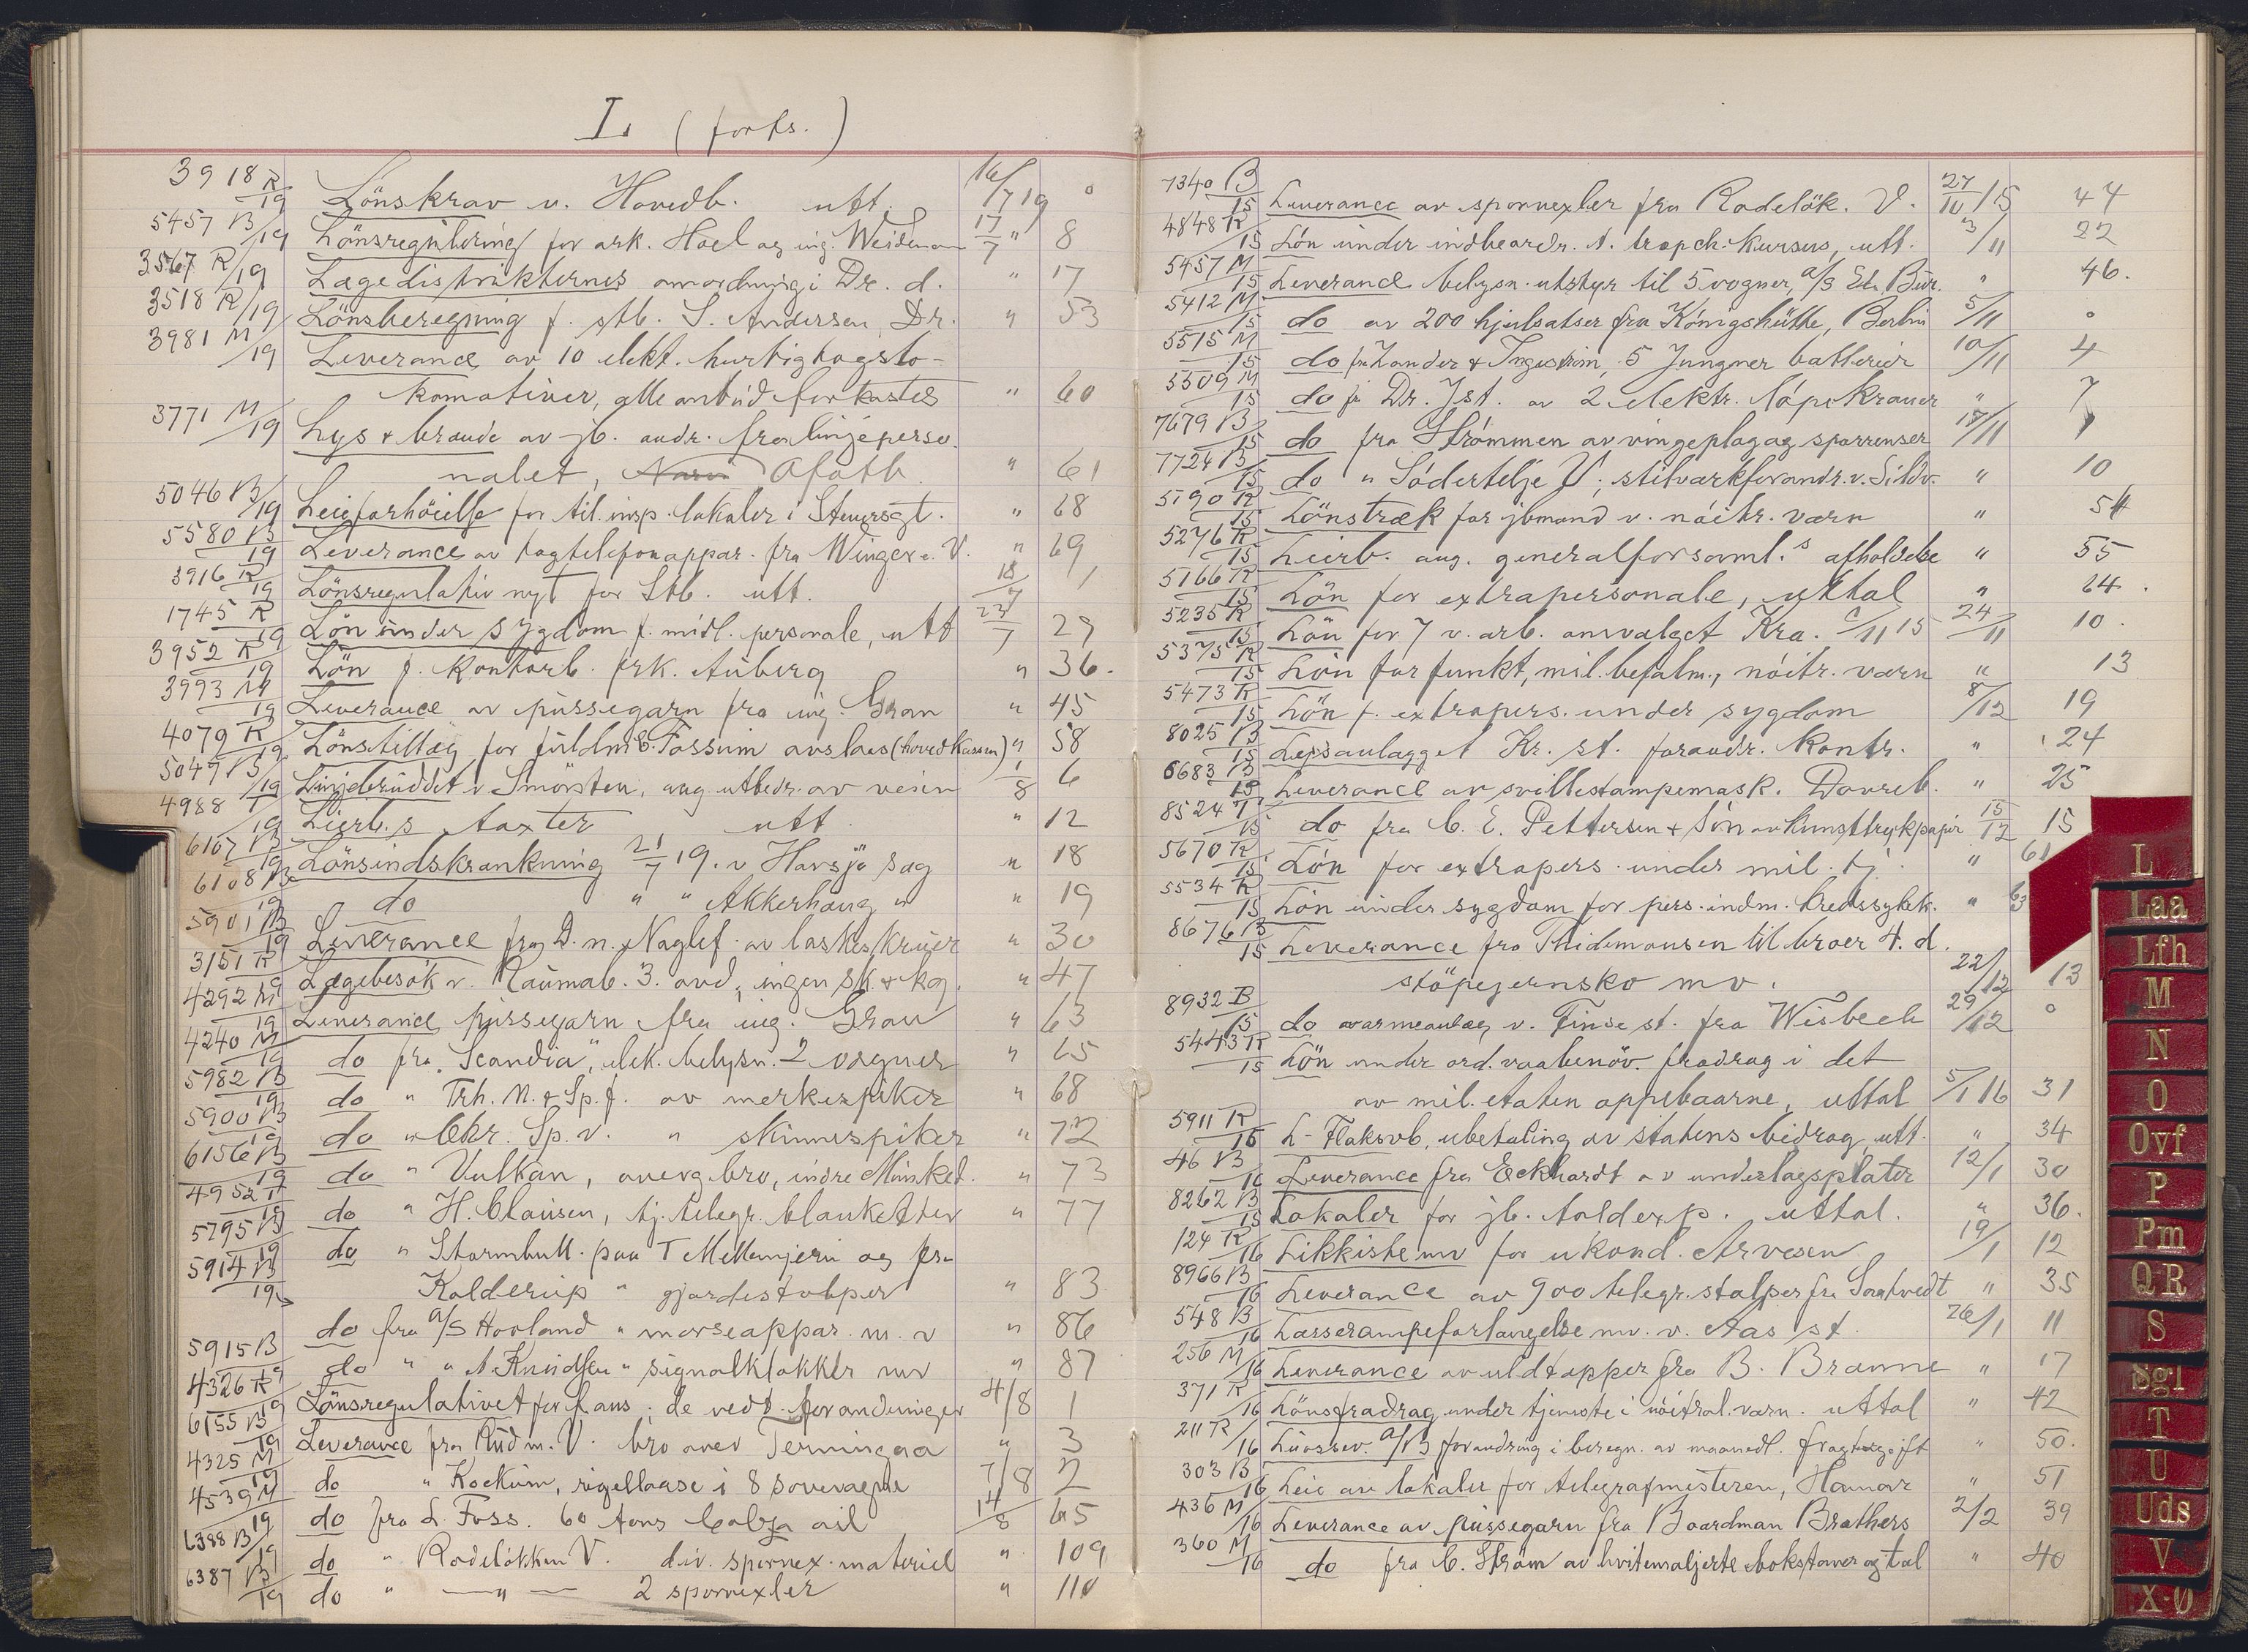 L. (forts.)
3918 R/19 Lönskrav v. Hovedb. utt. 16/7 19 0
5457 B/19 Lönsregulering for ark. Hoel og ing. Weideman 17/7 " 8
3567 R/19 Lægedistrikternes omordning i Dr. d. " 17
3518 R/19 Lönsberegning f. stb. S. Andersen, Dr. " 53
3981 M/19 Leverance av 10 elekt. hurtigtogslo-
komotiver, alle anbud forkastes " 60
3771 M/19 Lys & brænde av jb. andr. fra linjeperso-
nalet, Ofotb. " 61
5046 B/19 Leieforhöielse for til. insp. lokaler i Stenersgt. " 68
5580 B/19 Leverance av togtelefonappar. fra Winger e. V. " 69
3916 R/19 Lönsregulativ nyt for Stb. utt. 18/7 1
1745 R/19 Lön under sygdom f. midl. personale, utt 22/7 29
3952 R/19 Lön f. Kontorb. frk. Auberg " 36.
3993 M/19 Leverance av pussegarn fra ing. Gran " 45
4079 R/19 Lönstillæg for fuldm. C. Fossum avslaaes (hovedkassen) " 58
5047 B/19 Linjebruddet v Smörsten, ang utbedr. av veien 1/8 6
4988 T/19 Lierb.s taxter utt. " 12
6107 B/19 Lönsindskrænkning 21/7 19. v Harsjö sag " 18
6108 B/19 do " " Akkerhaug " " 19
5901 B/19 Leverance fra D. n. Naglef. av laskeskruer " 30
3151 R/19 Lægebesök v. Raumab. 3. avd., ingen sk. & kg. " 47
4292 M/19 Leverance pussegarn fra ing. Gran " 63
4240 M/19 do fra "Scandia", elek. belysn. 2 vogner " 65
5982 B/19 do " Trh. N. & Sp. f. av merkespiker " 68
5900 B/19 do " Chr. Sp. v. " skinnespiker " 72
6156 B/19 do " Vulkan, overg. bro, indre " 73
4952 T/19 do " H. Clausen, tj. telegr. blanketter " 77
5795 B/19 do " Stormbull. paa T og fra
5914 B/19 Kolderup " gjerdestolper " 83
do fra A/S Hovland " morseappar. m. v " 86
5915 B/19 do " " A. Knudsen " signalklokker mv " 87
4326 R/19 Lönsregulativet for f. ans; de vedt. forandringer 4/8 1
6155 B/19 Leverance fra Rudm. V. bro over Terningaa " 3
4325 M/19 do " Kockum, rigellaase i 8 sovevogne 7/8 2
4539 M/19 do fra L. Foss. 60 tons Calza oil 14/8 65
6388 B/19 do " Rodelökken V. div. sporvex. materiel " 109
6387 B/19 do " — " — 2 sporvexler " 110
7340 B/15 Leverance av sporvexler fra Rodelök. V. 27/10 15 44
4848 R/15 Lön under indbeordr. t. kursus, utt. 3/11 22
5457 M/15 Leverance belysn. utstyr til 5 vogner, A/S El. Bur. " 46.
5412 M/15 do av 200 hjulsatser fra Königshütte, Berlin 5/11 0
5515 M/15 do fra Zander & Ingeström, 5 Jungner batterier 10/11 4
5509 M/15 do fra Dr. Ist. av 2 elektr. löpekraner " 7
7679 B/15 do fra Strömmen av vingeplog og sporrenser 17/11 1
7724 B/15 do " Södertelje V; stilværkforandr. v. Sildv. " 10
5190 R/15 Lönstræk for jbmænd v. nöitr. værn " 54
5276 R/15 Lierb. ang. generalforsaml.s afholdelse " 55
5166 R/15 Lön for extrapersonale, uttal " 64.
5235 R/15 Lön for 7 v. arb. ansvalget Kra. 11 15 24/11 10.
5375 R/15 Lön for funkt, mil. befalm., nöitr. værn " 13
5473 R/15 Lön f. extrapers. under sygdom 8/12 19
8025 B/15 Lysanlægget Kr. st. forandr. kontr. " 24
6683 B/15 Leverance av svillestampemask. Dovreb. " 25
8524 T/15 do fra C. E. Pettersen & Sön av Kunsttrykpapir 15/12 15
5670 R/15 Lön for extrapers. under mil. tj. " 61
5534 R/15 Lön under sygdom for pers. indm. kredssykek. " 63
8676 B/15 Leverance fra Thidemansen til broer 4. d.
stöpejernsko mv. 22/12 13
8932 B/15 do varmeanlæg v. Finse st. fra Wisbech 29/12 0
5443 R/15 Lön under ord. vaabenöv. fradrag i det
av mil. etaten oppebaarne, uttal 5/1 16 31
5911 R/15 L-Flaksvb, ubetaling av statens bidrag, utt. " 34
46 B/16 Leverance fra Eckhardt av underlagsplater 12/1 30
8262 B/15 Lokaler for jb. toldexp. uttal. " 36.
124 R/16 Likkiste mv for ukond. Arvesen 19/1 12
8966 B/16 Leverance av 900 telegr. stolper fra Saatvedt " 35
548 B/16 Læsserampeforlængelse mv. v. Aas st. 26/1 11
256 M/16 Leverance av uldtæpper fra B. Branne " 17
371 R/16 Lönsfradrag under tjeneste i nöitral. værn. uttal " 42
211 R/16 A/B forandring i beregn. av maanedl. fragtopgift " 50.
303 B/16 Leie av lokaler for telegrafmesteren, Hamar " 51
436 M/16 Leverance av pussegarn fra Boardman Brothers 2/2 39
360 M/16 do fra C. Ström av hvitemaljerte bokstaver og tal " 40
L
Laa
Lfh
M
N
O
Ovf
P
Pm
Q R
S
Sgl
T
U
Uds
V
X-Ø